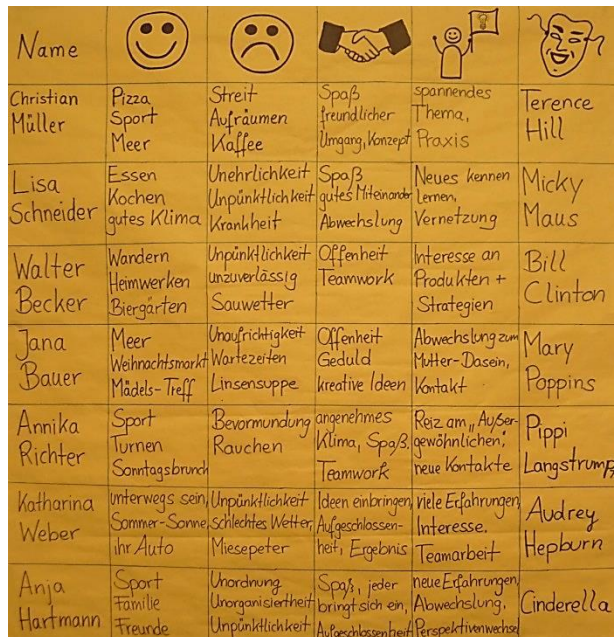 Name
Christian
Müller
Pizza
Sport
Meer
Streit
Aufräumen
Kaffee
Spaß
freundlicher
Umgang, Konzept
spannendes
Thema,
Praxis
Terence
Hill
Lisa
Schneider
Essen
Kochen
gutes Klima
Unehrlichkeit
Unpünktlichkeit
Krankheit
Spaß
gutes Miteinander
Abwechslung
Neues kennen
lernen,
Vernetzung
Micky
Maus
Walter
Becker
Wandern
Heimwerken
Biergärten
Unpünktlichkeit
unzuverlässig
Sauwetter
Offenheit
Teamwork
Interesse an
Produkten +
Strategien
Bill
Clinton
Jana
Bauer
Meer
Weihnachtsmarkt
Mädels-Treff
Unaufrichtigkeit
Wartezeiten
Linsensuppe
Offenheit
Geduld
kreative Ideen
Abwechslung zum
Mutter-Dasein,
Kontakt
Mary
Poppins
Annika
Richter
Sport
Turnen
Sonntagsbrunch
Bevormundung
Rauchen
angenehmes
Klima, Spaß,
Teamwork
Reiz am „Außer-
gewöhnlichen",
neue Kontakte
Pippi
Langstrumpf
Katharina
Weber
unterwegs sein,
Sommer-Sonne,
ihr Auto
Unpünktlichkeit
schlechtes Wetter,
Miesepeter
Ideen einbringen,
Aufgeschlossen-
heit, Ergebnis
viele Erfahrungen,
Interesse.
Teamarbeit
Audrey
Hepburn
Anja
Hartmann
Sport
Familie
Freunde
Unordnung
Unorganisiertheit
Unpünktlichkeit
Spaß, jeder
bringt sich ein,
Aufgeschlossenheit
neue Erfahrungen,
Abwechslung,
Perspektivenwechsel
Cinderella